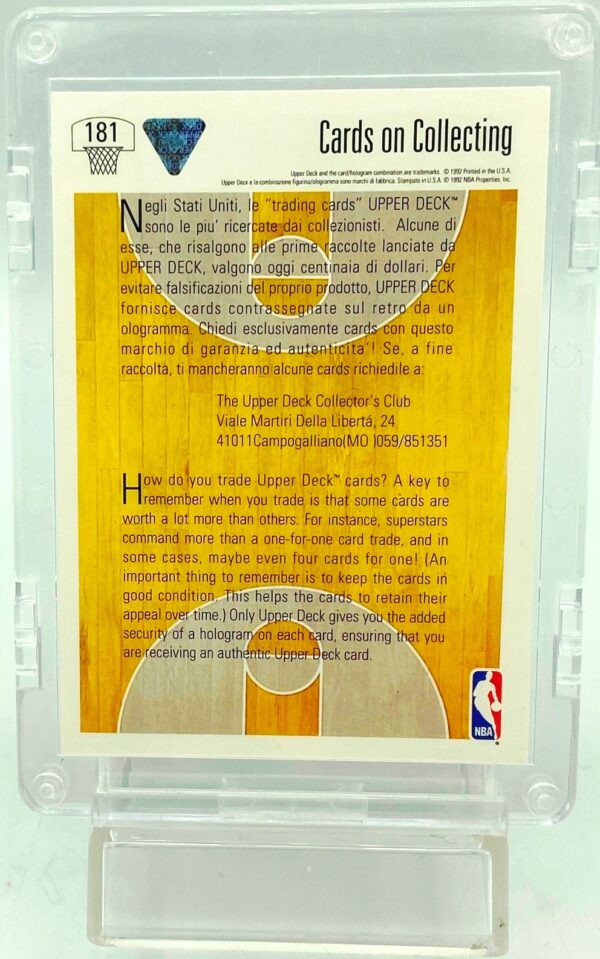 181
Cards on Collecting
Upper Deck and the card/hologram combination are trademarks. © 1992 Printed in the U.S.A.
Upper Deck e la combinazione figurina/ologramma sono marchi di fabbrica. Stampato in U.S.A. © 1992 NBA Properties, Inc.
Negli Stati Uniti, le "trading cards" UPPER DECK™
sono le piu' ricercate dai collezionisti. Alcune di
esse, che risalgono alle prime raccolte lanciate da
UPPER DECK, valgono oggi centinaia di dollari. Per
evitare falsificazioni del proprio prodotto, UPPER DECK
fornisce cards contrassegnate sul retro da un
ologramma. Chiedi esclusivamente cards con questo
marchio di garanzia ed autenticita'! Se, a fine
raccolta, ti mancheranno alcune cards richiedile a:
The Upper Deck Collector's Club
Viale Martiri Della Libertá, 24
41011Campogalliano(MO )059/851351
How do you trade Upper Deck™ cards? A key to
remember when you trade is that some cards are
worth a lot more than others. For instance, superstars
command more than a one-for-one card trade, and in
some cases, maybe even four cards for one! (An
important thing to remember is to keep the cards in
good condition. This helps the cards to retain their
appeal over time.) Only Upper Deck gives you the added
security of a hologram on each card, ensuring that you
are receiving an authentic Upper Deck card.
NBA